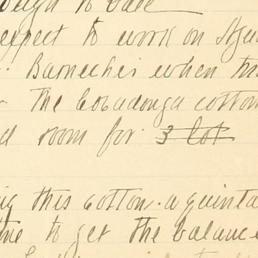 to date
expect to work on
Barneches when
The Cobadonga cotton
room for 3 lot
this cotton. a quintal
to get the balance